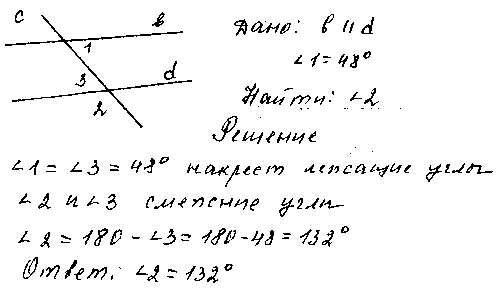 c
b
1
3
d
2
Дано: b || d
∠1 = 48°
Найти: ∠2
Решение
∠1 = ∠3 = 48° накрест лежащие углы
∠2 и ∠3 смежные углы
∠2 = 180 - ∠3 = 180 - 48 = 132°
Ответ: ∠2 = 132°